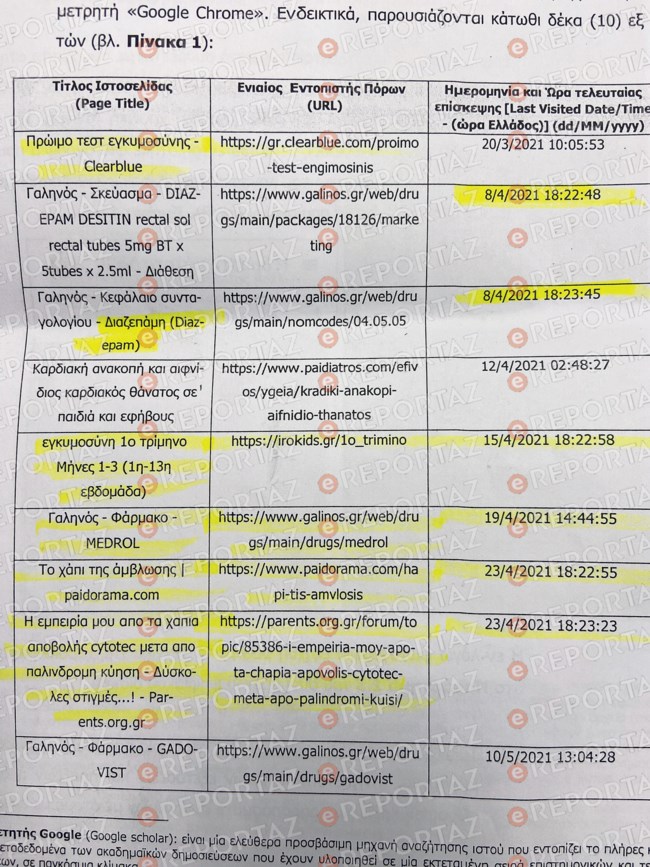 μετρητή «Google Chrome». Ενδεικτικά, παρουσιάζονται κάτωθι δέκα (10) εξ
τών (βλ. Πίνακα 1):
Τίτλος Ιστοσελίδας
(Page Title)
Ενιαίος Εντοπιστής Πόρων
(URL)
Ημερομηνία και Ώρα τελευταίας
επίσκεψης [Last Visited Date/Time
- (ώρα Ελλάδος)] (dd/MM/yyyy)
Πρώιμο τεστ εγκυμοσύνης -
Clearblue
https://gr.clearblue.com/proimo
-test-engimosinis
20/3/2021 10:05:53
Γαληνός - Σκεύασμα - DIAZ-
EPAM DESITIN rectal sol
rectal tubes 5mg BT x
5tubes x 2.5ml - Διάθεση
https://www.galinos.gr/web/dru
gs/main/packages/18126/marke
ting
8/4/2021 18:22:48
Γαληνός - Κεφάλαιο συντα-
γολογίου - Διαζεπάμη (Diaz-
epam)
https://www.galinos.gr/web/dru
gs/main/nomcodes/04.05.05
8/4/2021 18:23:45
Καρδιακή ανακοπή και αιφνί-
διος καρδιακός θάνατος σε'
παιδιά και εφήβους
https://www.paidiatros.com/efiv
os/ygeia/kradiki-anakopi-
aifnidio-thanatos
12/4/2021 02:48:27
εγκυμοσύνη 1ο τρίμηνο
Μήνες 1-3 (1η-13η
εβδομάδα)
https://irokids.gr/1o_trimino
15/4/2021 18:22:58
Γαληνός - Φάρμακο -
MEDROL
https://www.galinos.gr/web/dru
gs/main/drugs/medrol
19/4/2021 14:44:55
Το χάπι της άμβλωσης |
paidorama.com
https://www.paidorama.com/ha
pi-tis-amvlosis
23/4/2021 18:22:55
Η εμπειρία μου απο τα χαπια
αποβολής cytotec μετα απο
παλινδρομη κύηση - Δύσκο-
λες στιγμές...! - Par-
ents.org.gr
https://parents.org.gr/forum/to
pic/85386-i-empeiria-moy-apo-
ta-chapia-apovolis-cytotec-
meta-apo-palindromi-kuisi/
23/4/2021 18:23:23
Γαληνός - Φάρμακο - GADO-
VIST
https://www.galinos.gr/web/dru
gs/main/drugs/gadovist
10/5/2021 13:04:28
ετητής Google (Google scholar): είναι μία ελεύθερα προσβάσιμη μηχανή αναζήτησης ιστού που εντοπίζει το πλήρες κ
εταδεδομένα των ακαδημαϊκών δημοσιεύσεων που έχουν υλοποιηθεί σε μία εκτεταμένη σειρά επιστημονικών και τε